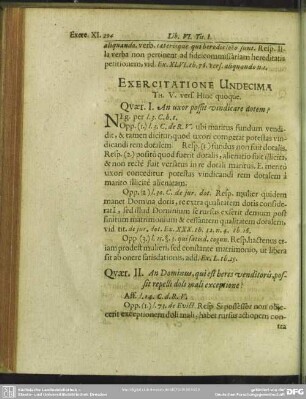 Exerc. XI. 224 Lib. VI. Tit. I.
aliquando, verb. cæterisque quo heredis loco sunt. Resp. Il-
la verba non pertinent ad fideicommissariam hereditatis
petitionem, vid. Ex. XI. VI. th. 76. vers. aliquando n. 1.
EXERCITATIONE UNDECIMA
TH. V. vers. Huc quoque.
QUÆT. I. An uxor possit vindicare dotem?
NEg. per l. 9. C. h. t.
Opp. (1.) l. 3. C. de R. V. ubi maritus fundum vendi-
dit, & tamen dicitur, quod uxori competat potestas vin-
dicandi rem dotalem Resp. (1.) fundus non fuit dotalis.
Resp. (2.) posito quod fuerit dotalis, alienatio fuit illicita,
& non recte fuit versatus in re dotali maritus. E. merito
uxori conceditur potestas vindicandi rem dotalem à
marito illicitè alienatam.
Opp. (2.) l. 30. C. de jur. dot. Resp. mulier quidem
manet Domina dotis, re extra qualitatem dotis conside-
ratâ, sed illud Dominium se rursus exserit demum post
finitum matrimonium & cessantem qualitatem dotalem,
vid. tit. de jur. dot. Ex. XXX. th. 12. n. 4. th. 18.
Opp. (3.) l. 11. §. 4. qui satisd. cogun. Resp. hactenus et-
iam prodest mulieri sed constante matrimonio, ut libera
sit ab onere satisdationis, add. Ex. L. th. 25.
QUÆT. II. An Dominus, qui est heres venditoris, pos-
sit repelli doli mali exceptione?
Aff. l. 14. C. d. R. V.
Opp. (1.) l. 73. de Evict. Resp. Si possessor non obji-
cerit exceptionem doli mali, habet rursus actionem con-
tra